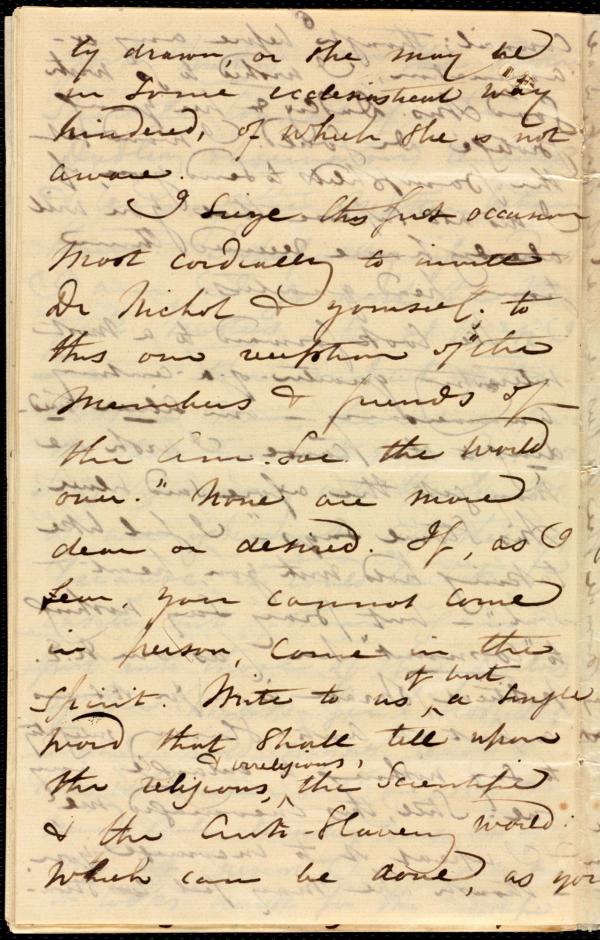 ty drawn, or she may be
in some ecclesiastical way
hindered, of which she is not
aware.
I seize this first occasion
most cordially to invite
Dr Nichol & yourself, to
this our reception of "the
members & friends of
the Am. Soc. the world
over." None are more
dear or desired. If, as I
fear, you cannot come
in person, come in the
Spirit. Write to us
if but
a single
word that shall tell upon
& irreligious,
the religious, the Scientific
& the Anti-Slavery world:
which can be done, as you